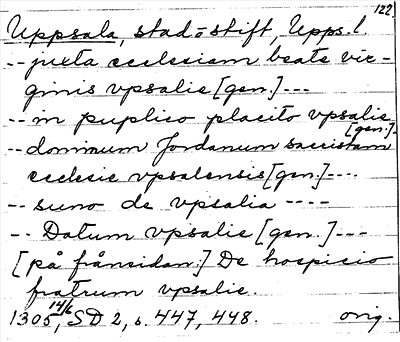 122.
Uppsala, stad o stift, Upps. l.
-- juxta ecclesiam beate vir-
ginis vpsalie [gen.] ---
-- in puplico placito vpsalie
[gen.]
-- dominum Jordanum sacristam
ecclesie vpsalensis [gen.] ----
-- suno de vpsalia ----
-- Datum vpsalie [gen.] ---
[på frånsidan:] De hospicio
fratrum vpsalie.
1305 14/6, SD 2, s. 447, 448. orig.